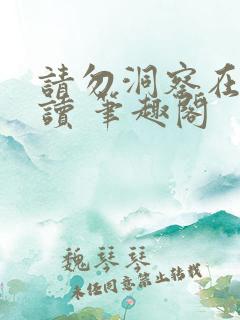 請勿洞察在
讀 筆趣閣
魏琴琴
未经同意禁止转载